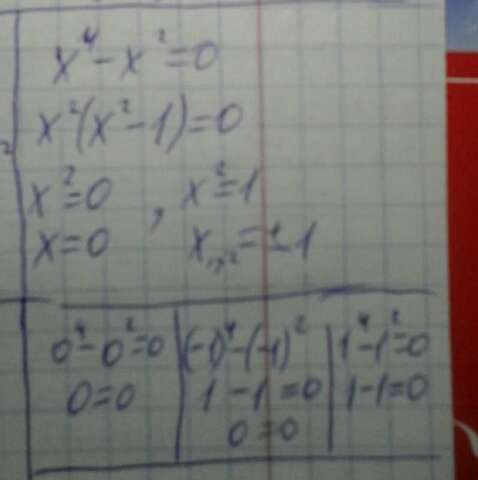 x⁴-x²=0
x²(x²-1)=0
x²=0, x²=1
x=0 x₁,₂=±1
0⁴-0²=0 | (-1)⁴-(-1)² | 1⁴-1²=0
0=0 | 1-1=0 | 1-1=0
0=0